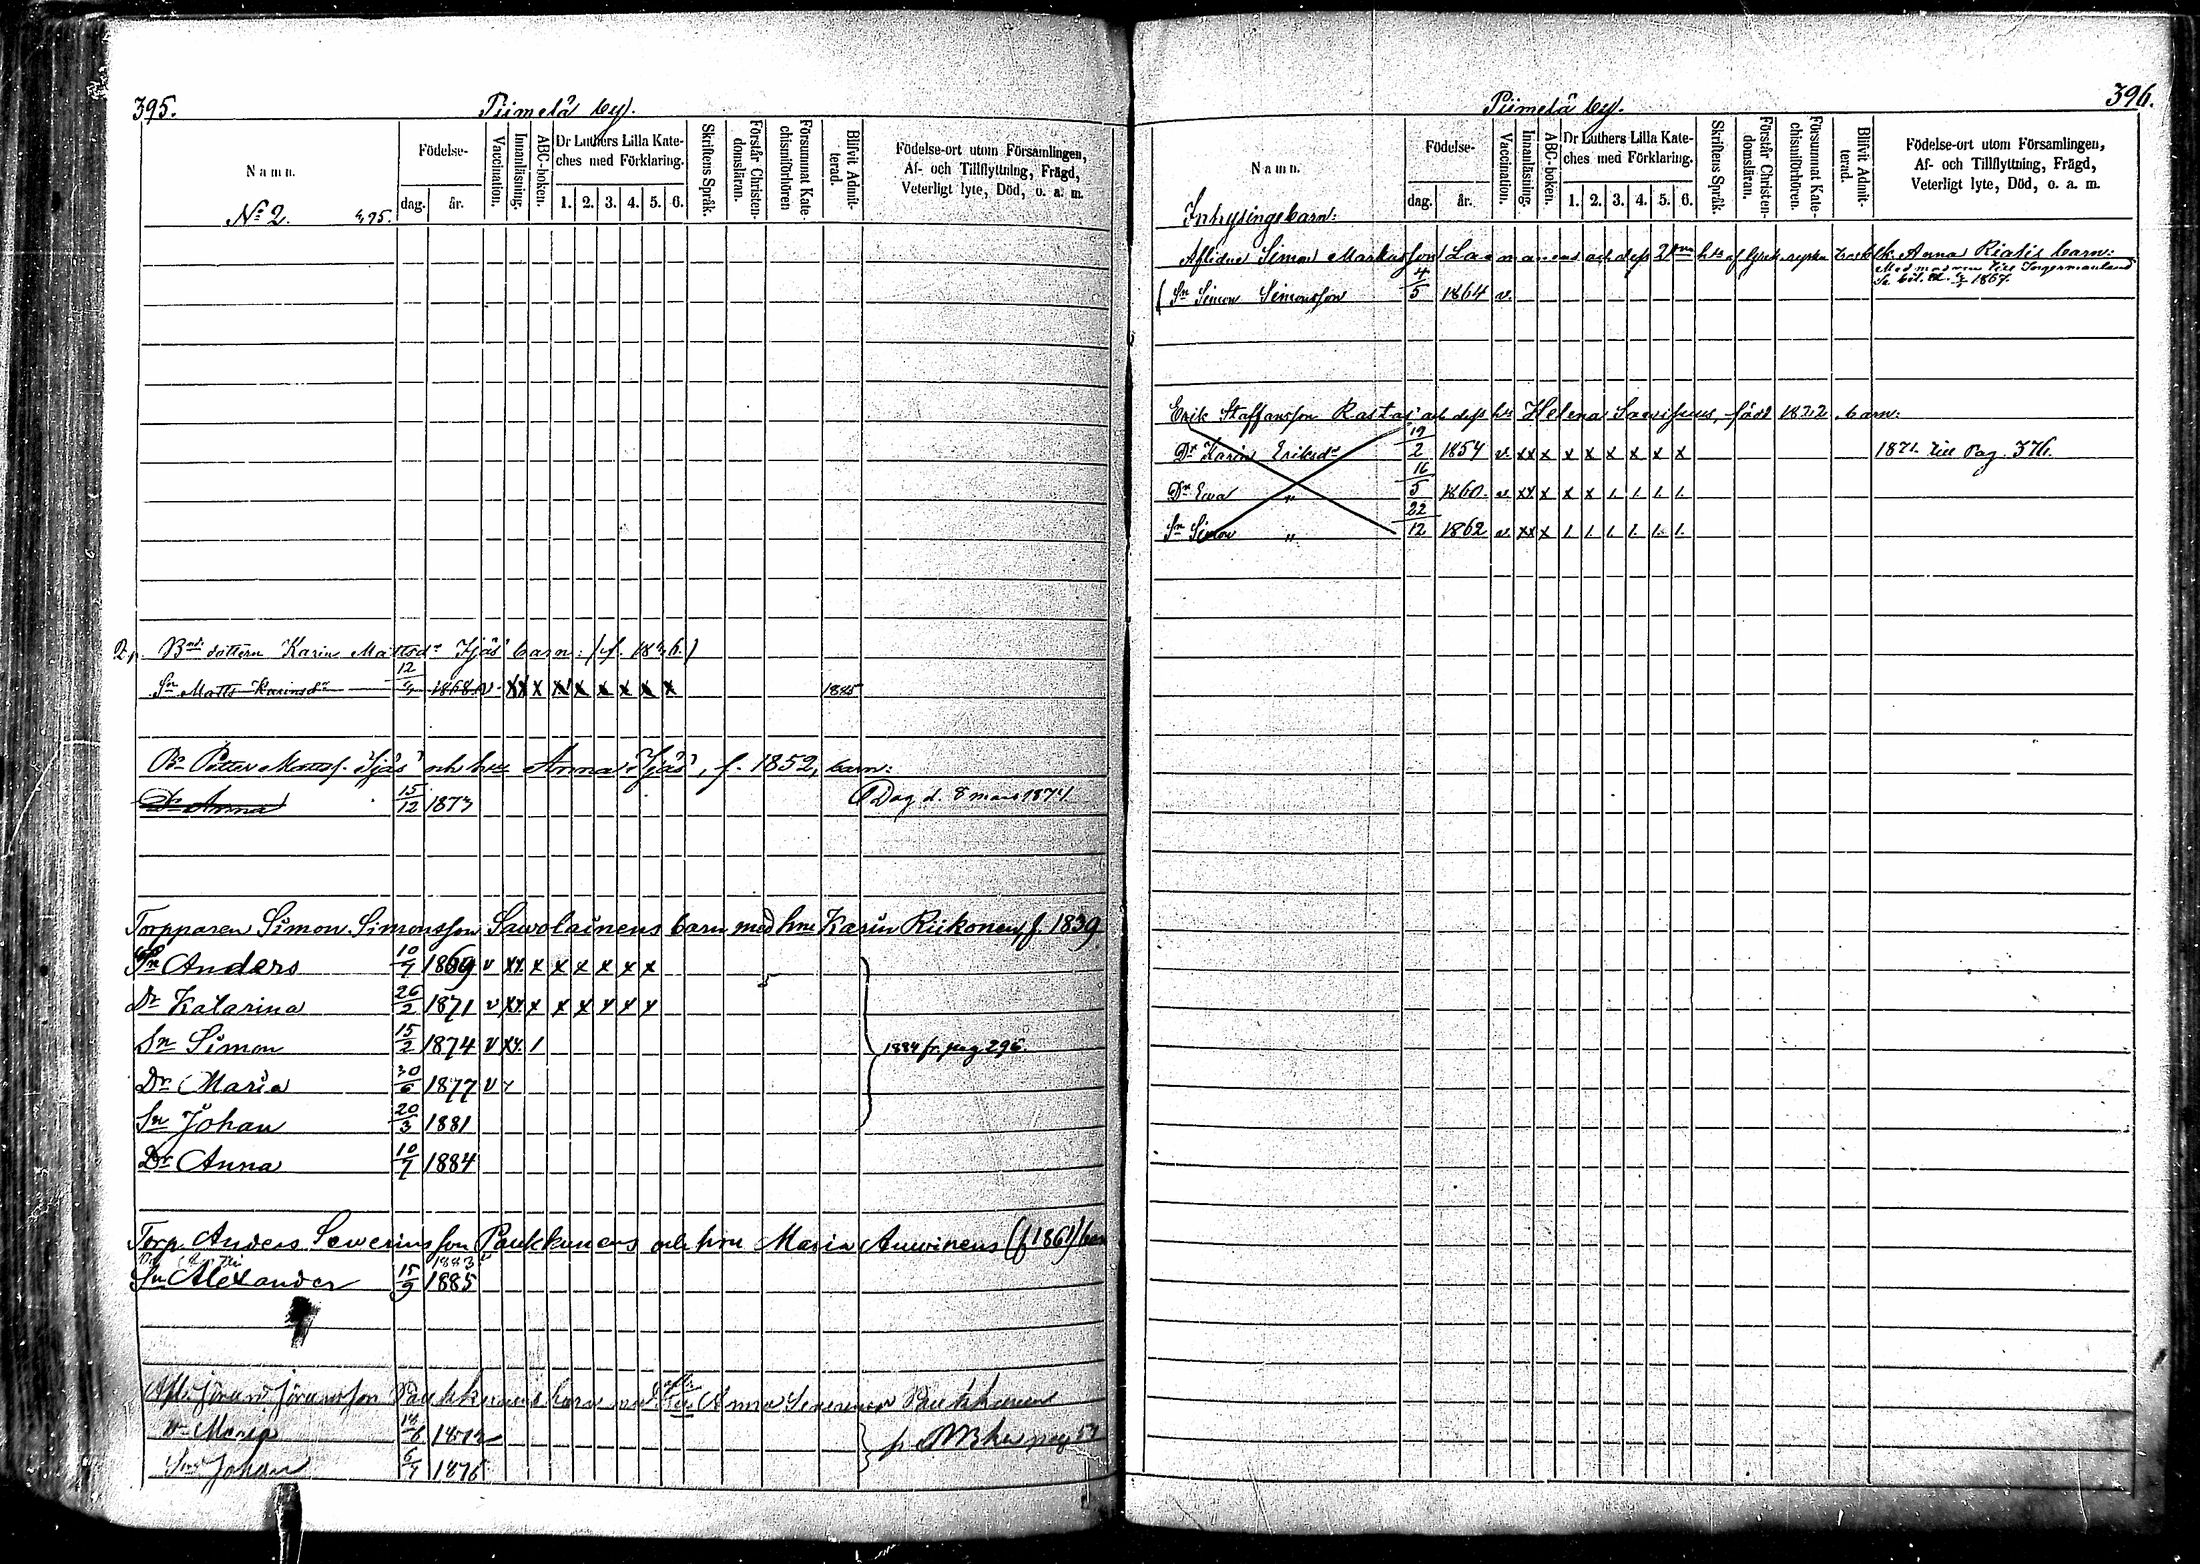 395.
Piimelä by.
Namn.
Födelse-
dag. år.
Vaccination.
Innanläsning.
ABC-boken.
Dr Luthers Lilla Kate-
ches med Förklaring.
1. 2. 3. 4. 5. 6.
Skriftens Språk.
Förstår Christen-
domsläran.
Försummat Kate-
chismiförhören
Blifvit Admit-
terad.
Födelse-ort utom Församlingen,
Af- och Tillflyttning, Frägd,
Veterligt lyte, Död, o. a. m.
No 2. 395.
Karin Mattsdr Ijäs' barn:
Sn Matts Karinsdr 12 1868 v. xx x x x x x x x 1885
Bn Petter Mattss. Ijäs' och hu Anna Ijäs', f. 1852, barn:
Dr Anna 15/12 1873 Dog d. 8 mars 1874
Torpparen Simon Simonsson Sawolainens barn med hru Karin Riikonen, f. 1839
Sn Anders 10/7 1869 v xx x x x x x x
Dr Katarina 26/2 1871 v xx x x x x x x
Sn Simon 15/2 1874 v xx 1
1884 fr. pag. 296.
Dr Maria 30/6 1877 v
Sn Johan 20/3 1881
Dr Anna 10/7 1884
Torp. Anders Sewerinsson Paukkunens och hru Maria Auwinens (f 1861) barn
1883
Sn Alexander 15/9 1885
Paukkunens barn med Anna Paukkunen
Dr Maria
Johan 6/7 1876
396.
Piimelä by.
Namn.
Födelse-
dag. år.
Vaccination.
Innanläsning.
ABC-boken.
Dr Luthers Lilla Kate-
ches med Förklaring.
1. 2. 3. 4. 5. 6.
Skriftens Språk.
Förstår Christen-
domsläran.
Försummat Kate-
chismiförhören.
Blifvit Admit-
terad.
Födelse-ort utom Församlingen,
Af- och Tillflyttning, Frägd,
Veterligt lyte, Död, o. a. m.
Inhysingsbarn:
Aflidne Simon Markusson Laananens och dess 2dra hu af Anna Riatis barn:
Med modren till Ingermanland
1867.
Sn Simon Simonsson 4/5 1864 v.
Erik Staffansson Rastas' och dess hu Helena född 1822, barn:
Dr Karin Eriksdr 19/2 1854 v. xx x x x x x x x 1871 till Pag. 376.
Dr Ewa " 16/5 1860 v. xx x x x 1. 1. 1. 1.
Sn Simon " 22/12 1862 v. xx x 1. 1. 1. 1. 1. 1.